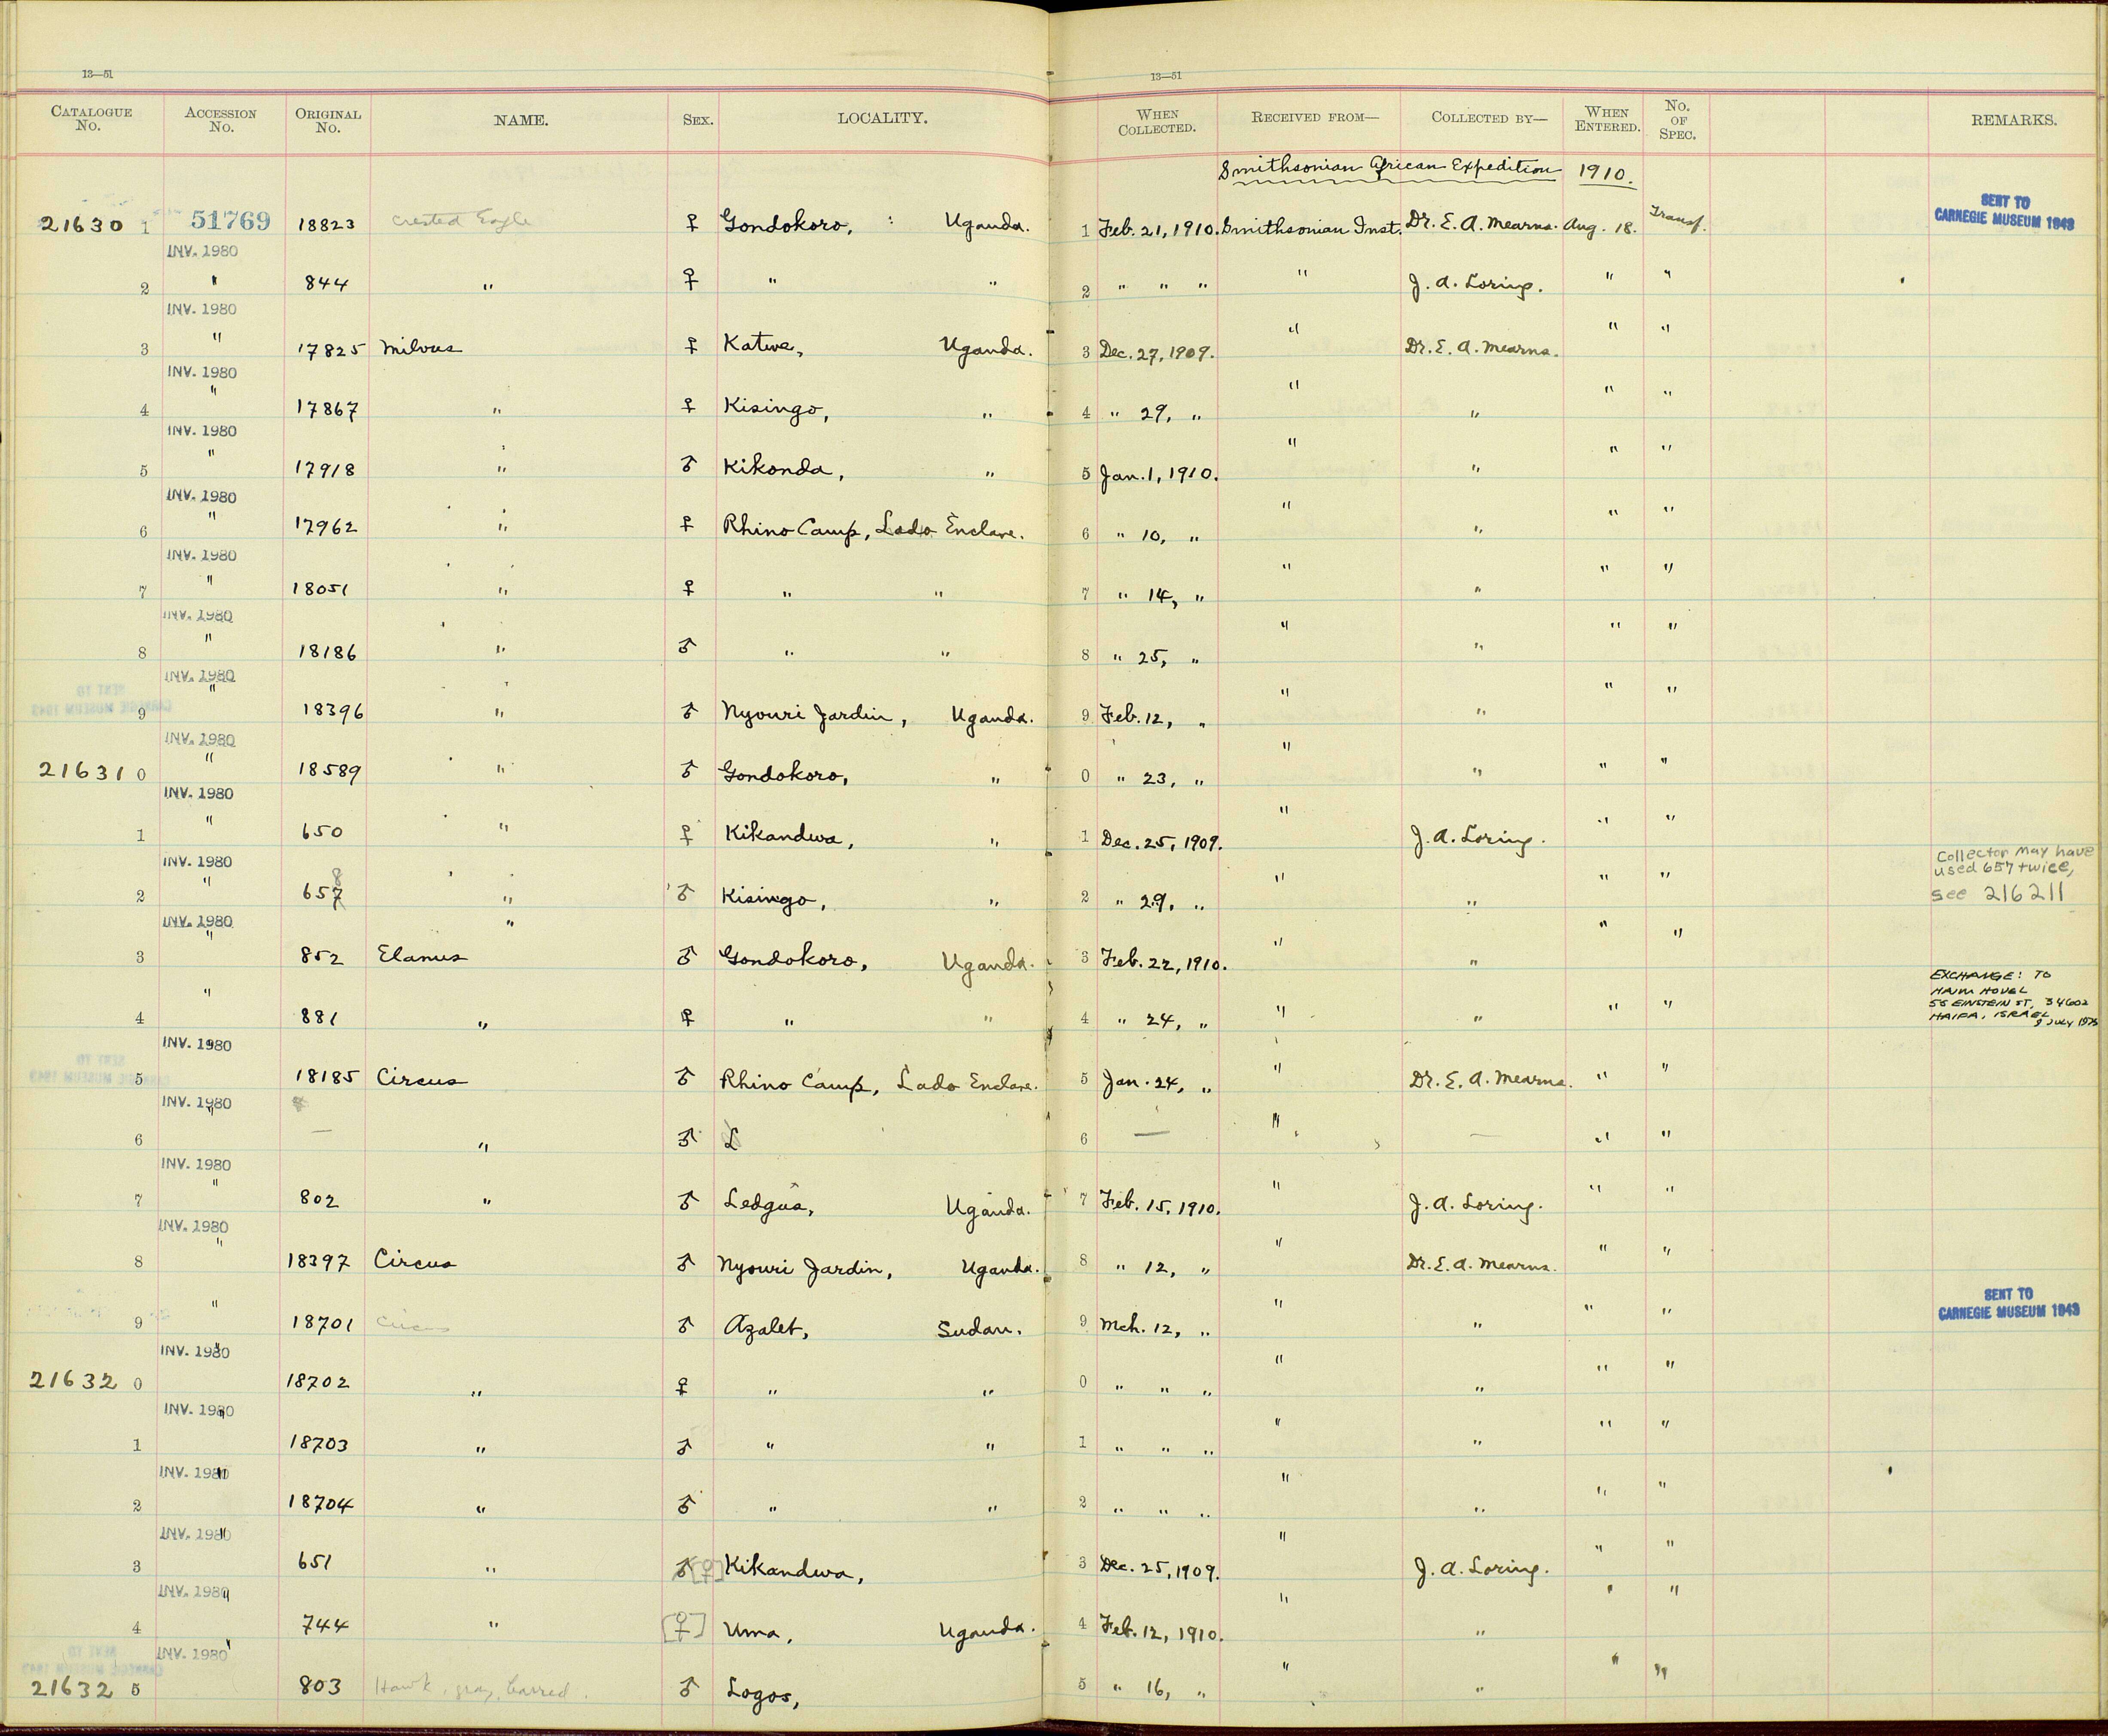 13—51 13—51
CATALOGUE No. ACCESSION No. ORIGINAL No. NAME. SEX. LOCALITY. WHEN COLLECTED. RECEIVED FROM— COLLECTED BY— WHEN ENTERED. No. OF SPEC. REMARKS.
Smithsonian African Expedition 1910.
21630 1 51769 18823 Crested Eagle ♀ Gondokoro, Uganda. 1 Feb. 21, 1910. Smithsonian Inst. Dr. E. A. Mearns. Aug. 18. Transf. SENT TO CARNEGIE MUSEUM 1943
INV. 1980
2 " 844 " ♀ " " 2 " " " " J. A. Loring. " "
INV. 1980
3 " 17825 Milvus ♀ Katwe, Uganda. 3 Dec. 27, 1909. " Dr. E. A. Mearns. " "
INV. 1980
4 " 17867 " ♀ Kisingo, " 4 " 29, " " " " "
INV. 1980
5 " 17918 " ♂ Kikonda, " 5 Jan. 1, 1910. " " " "
INV. 1980
6 " 17962 " ♀ Rhino Camp, Lado Enclave. 6 " 10, " " " " "
INV. 1980
7 " 18051 " ♀ " " 7 " 14, " " " " "
INV. 1980
8 " 18186 " ♂ " " 8 " 25, " " " " "
INV. 1980
9 " 18396 " ♂ Nyouri Jardin, Uganda. 9 Feb. 12, " " " " "
INV. 1980
21631 0 " 18589 " ♂ Gondokoro, " 0 " 23, " " " " "
INV. 1980
1 " 650 " ♀ Kikandwa, " 1 Dec. 25, 1909. " J. A. Loring. " "
INV. 1980
2 " 657 8 " ♂ Kisingo, " 2 " 29, " " " " " Collector may have used 657 twice, see 216211
INV. 1980 "
3 " 852 Elanus ♂ Gondokoro, Uganda. 3 Feb. 22, 1910. " " " "
4 " 881 " ♀ " " 4 " 24, " " " " " EXCHANGE: TO HAIM HOVEL 56 EINSTEIN ST, 34602 HAIFA, ISRAEL 9 JULY 1975
INV. 1980
5 18185 Circus ♂ Rhino Camp, Lado Enclave. 5 Jan. 24, " " Dr. E. A. Mearns. " "
INV. 1980 "
6 — " ♂ L 6 — " — " "
INV. 1980
7 " 802 " ♂ Ledgus, Uganda. 7 Feb. 15, 1910. " J. A. Loring. " "
INV. 1980
8 " 18397 Circus ♂ Nyouri Jardin, Uganda. 8 " 12, " " Dr. E. A. Mearns. " "
9 " 18701 Circus ♂ Azalet, Sudan. 9 Mch. 12, " " " " " SENT TO CARNEGIE MUSEUM 1943
INV. 1980 "
21632 0 18702 " ♀ " " 0 " " " " " " "
INV. 1980 "
1 18703 " ♂ " " 1 " " " " " " "
INV. 1980 "
2 18704 " ♂ " " 2 " " " " " " "
INV. 1980 "
3 651 " ♂ [♀] Kikandwa, 3 Dec. 25, 1909. " J. A. Loring. " "
INV. 1980 "
4 744 " [♀] Uma, Uganda. 4 Feb. 12, 1910. " " " "
INV. 1980 "
21632 5 803 Hawk, gray, barred. ♂ Logos, 5 " 16, " " " " "